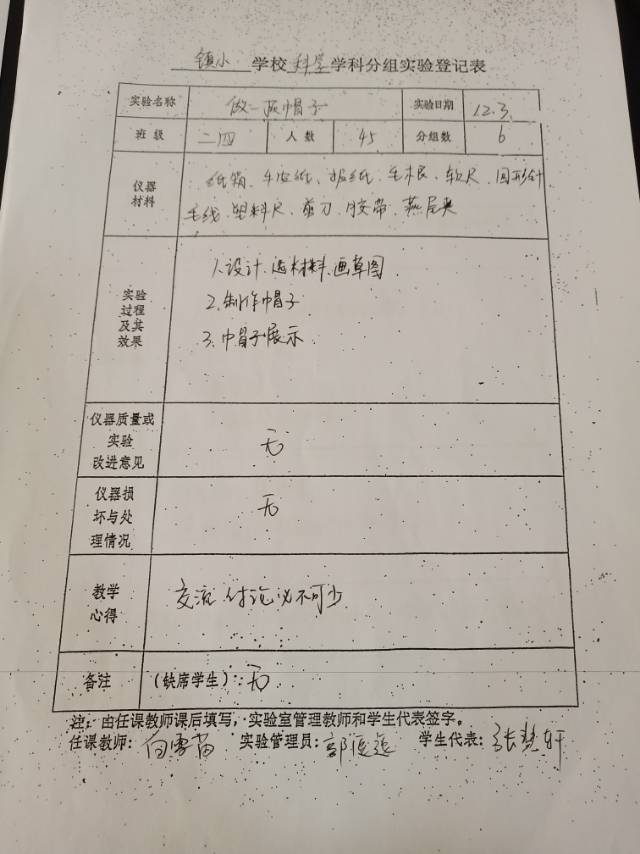 镇小 学校 科学 学科分组实验登记表
实验名称 做一顶帽子 实验日期 12.3.
班级 二四 人数 45 分组数 6
仪器材料 纸箱、牛皮纸、报纸、毛根、软尺、回形针
毛线、塑料尺、剪刀、胶带、燕尾夹
实验过程及其效果
1.设计、选材料、画草图
2.制作帽子
3.帽子展示
仪器质量或实验改进意见 无
仪器损坏与处理情况 无
教学心得 交流、讨论必不可少
备注 (缺席学生):无
注:由任课教师课后填写,实验室管理教师和学生代表签字。
任课教师: 实验管理员: 学生代表: